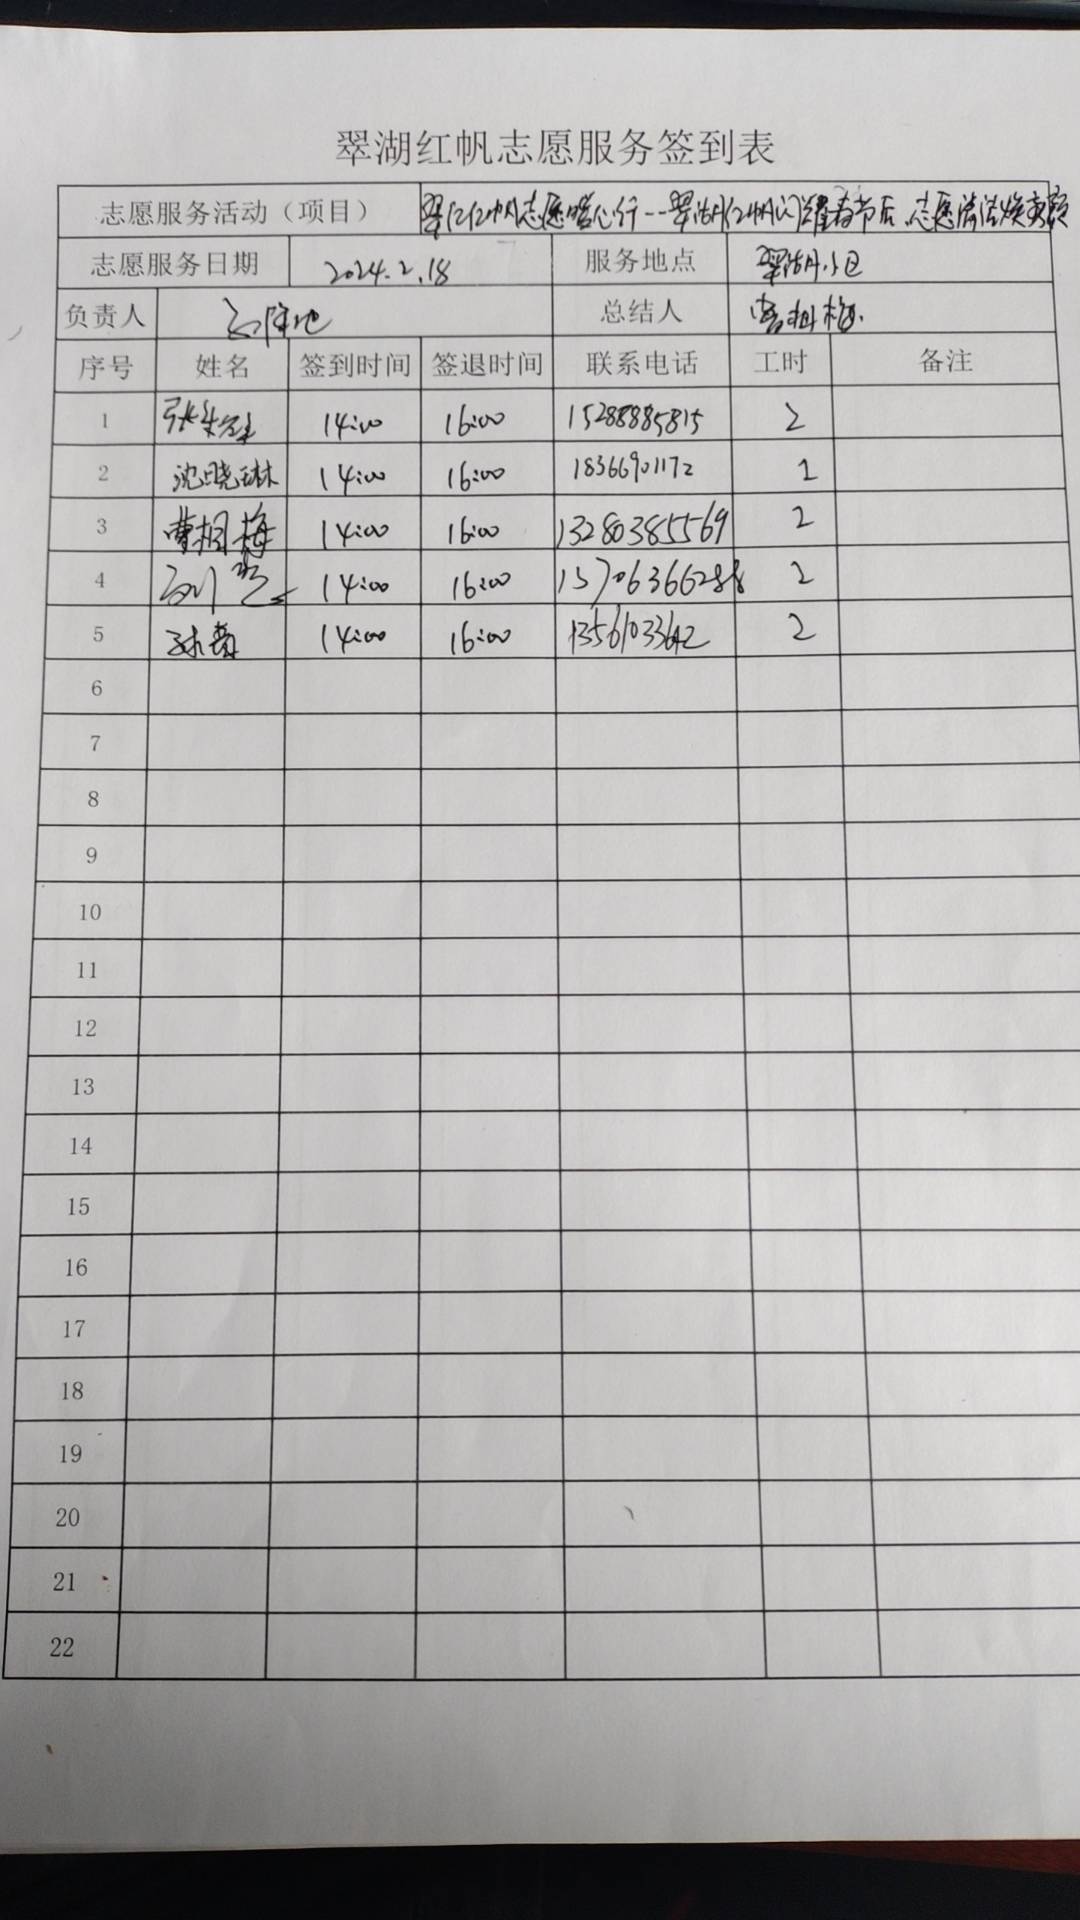 翠湖红帆志愿服务签到表
志愿服务活动（项目） 翠红红帆志愿暖心行--翠湖红帆闪耀春节后,志愿清洁焕新颜
志愿服务日期 2024.2.18 服务地点 翠湖小区
负责人 总结人 曹相梅
序号 姓名 签到时间 签退时间 联系电话 工时 备注
1 14:00 16:00 15288885815 2
2 沈晓琳 14:00 16:00 18366901172 2
3 曹相梅 14:00 16:00 13280385569 2
4 14:00 16:00 15706366288 2
5 14:00 16:00 13561033642 2
6
7
8
9
10
11
12
13
14
15
16
17
18
19
20
21
22